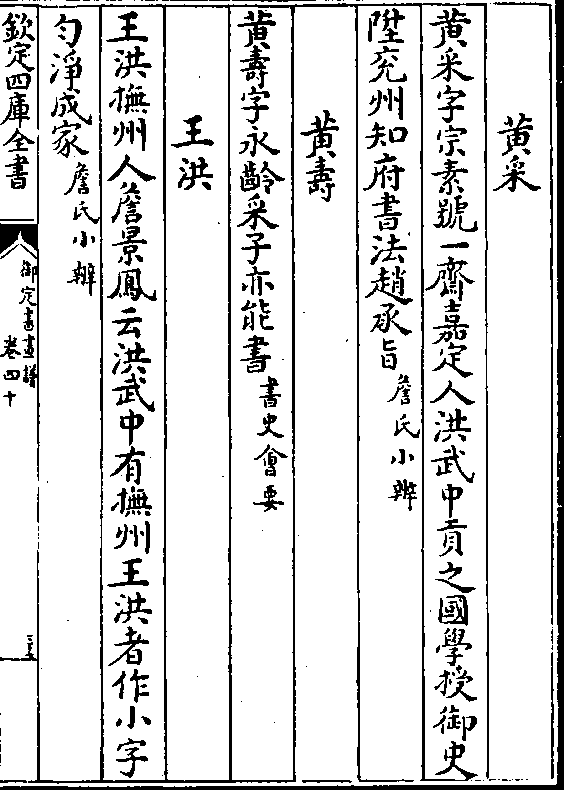 黄采
黄采字宗素號一齋嘉定人洪武中貢之國學授御史
陞兖州知府書法趙承旨詹氏小辨
黄壽
黄壽字永齡采子亦能書書史會要
王洪
王洪撫州人詹景鳳云洪武中有撫州王洪者作小字
勻淨成家詹氏小辨
欽定四庫全書
御定書畫譜
卷四十